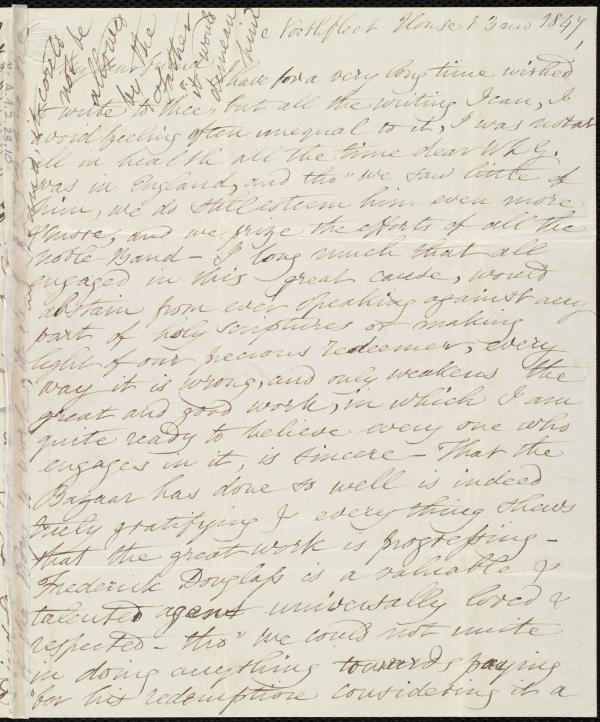 Northfleet House 1 3 mo 1847,
My dear friend
I have for a very long time wished
to write to thee, but all the writing I can, I
avoid feeling often unequal to it, I was not at
all in health all the time dear W L G.
was in England, and tho" we saw little of
him, we do still esteem him even more
& more, and we prize the efforts of all the
noble Band - I long much that all
engaged in this great cause, would
abstain from ever speaking against any
part of holy scriptures or making
light of our precious redeemer, every
way it is wrong, and only weakens the
great and good work, in which I am
quite ready to believe every one who
engages in it, is sincere - That the
Bazaar has done so well is indeed
truly gratifying & every thing shews
that the great work is progressing -
Frederick Douglass is a valuable &
talented agent universally loved &
respected - tho" we could not unite
in doing anything towards paying
for his redemption considering it a
it could
not be
allowed
by the
other
it would
demean
him